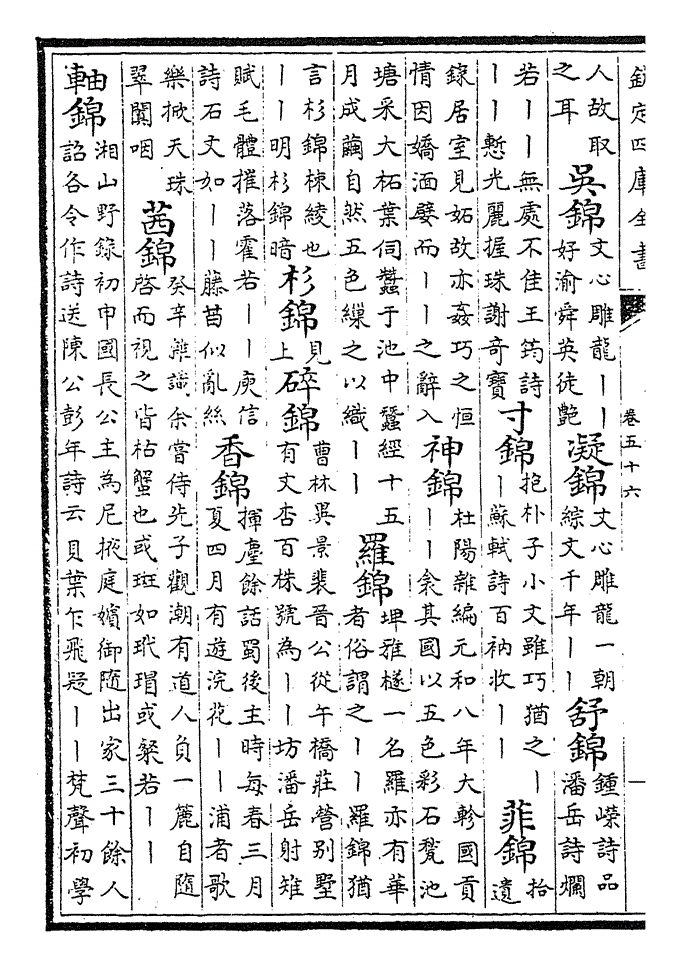 欽定四庫全書 卷五十六 一
人故取之耳 吳錦 文心雕龍丨丨好渝舜英徒艷 凝錦 文心雕龍一朝綜文千年丨丨 舒錦 鍾嶸詩品潘岳詩爛
若丨丨無處不佳王筠詩丨丨慙光麗握珠謝奇寶 寸錦 抱朴子小文雖巧猶之丨丨蘇軾詩百衲收丨丨 菲錦 拾遺
錄居室見妬故亦姦巧之恒情因嬌湎嬖而丨丨之辭入 神錦 杜陽雜編元和八年大軫國貢丨丨衾其國以五色彩石甃池
塘采大柘葉伺蠶于池中蠶經十五月成繭自然五色繅之以織丨丨 羅錦 埤雅檖一名羅亦有華者俗謂之丨丨羅錦猶
言杉錦棟綾也丨丨明杉錦暗 杉錦 見上 碎錦 曹林異景裴晉公從午橋莊營别墅有文杏百株號為丨丨坊潘岳射雉
賦毛體摧落霍若丨丨庾信詩石文如丨丨藤苗似亂絲 香錦 揮麈餘話蜀後主時每春三月夏四月有遊浣花丨丨浦者歌
樂掀天珠翠闐咽 茜錦 癸辛雜識余嘗侍先子觀潮有道人負一簏自隨啓而視之皆枯蟹也或斑如玳瑁或粲若丨丨
軸錦 湘山野錄初申國長公主為尼掖庭嬪御隨出家三十餘人詔各令作詩送陳公彭年詩云貝葉乍飛疑丨丨梵聲初學